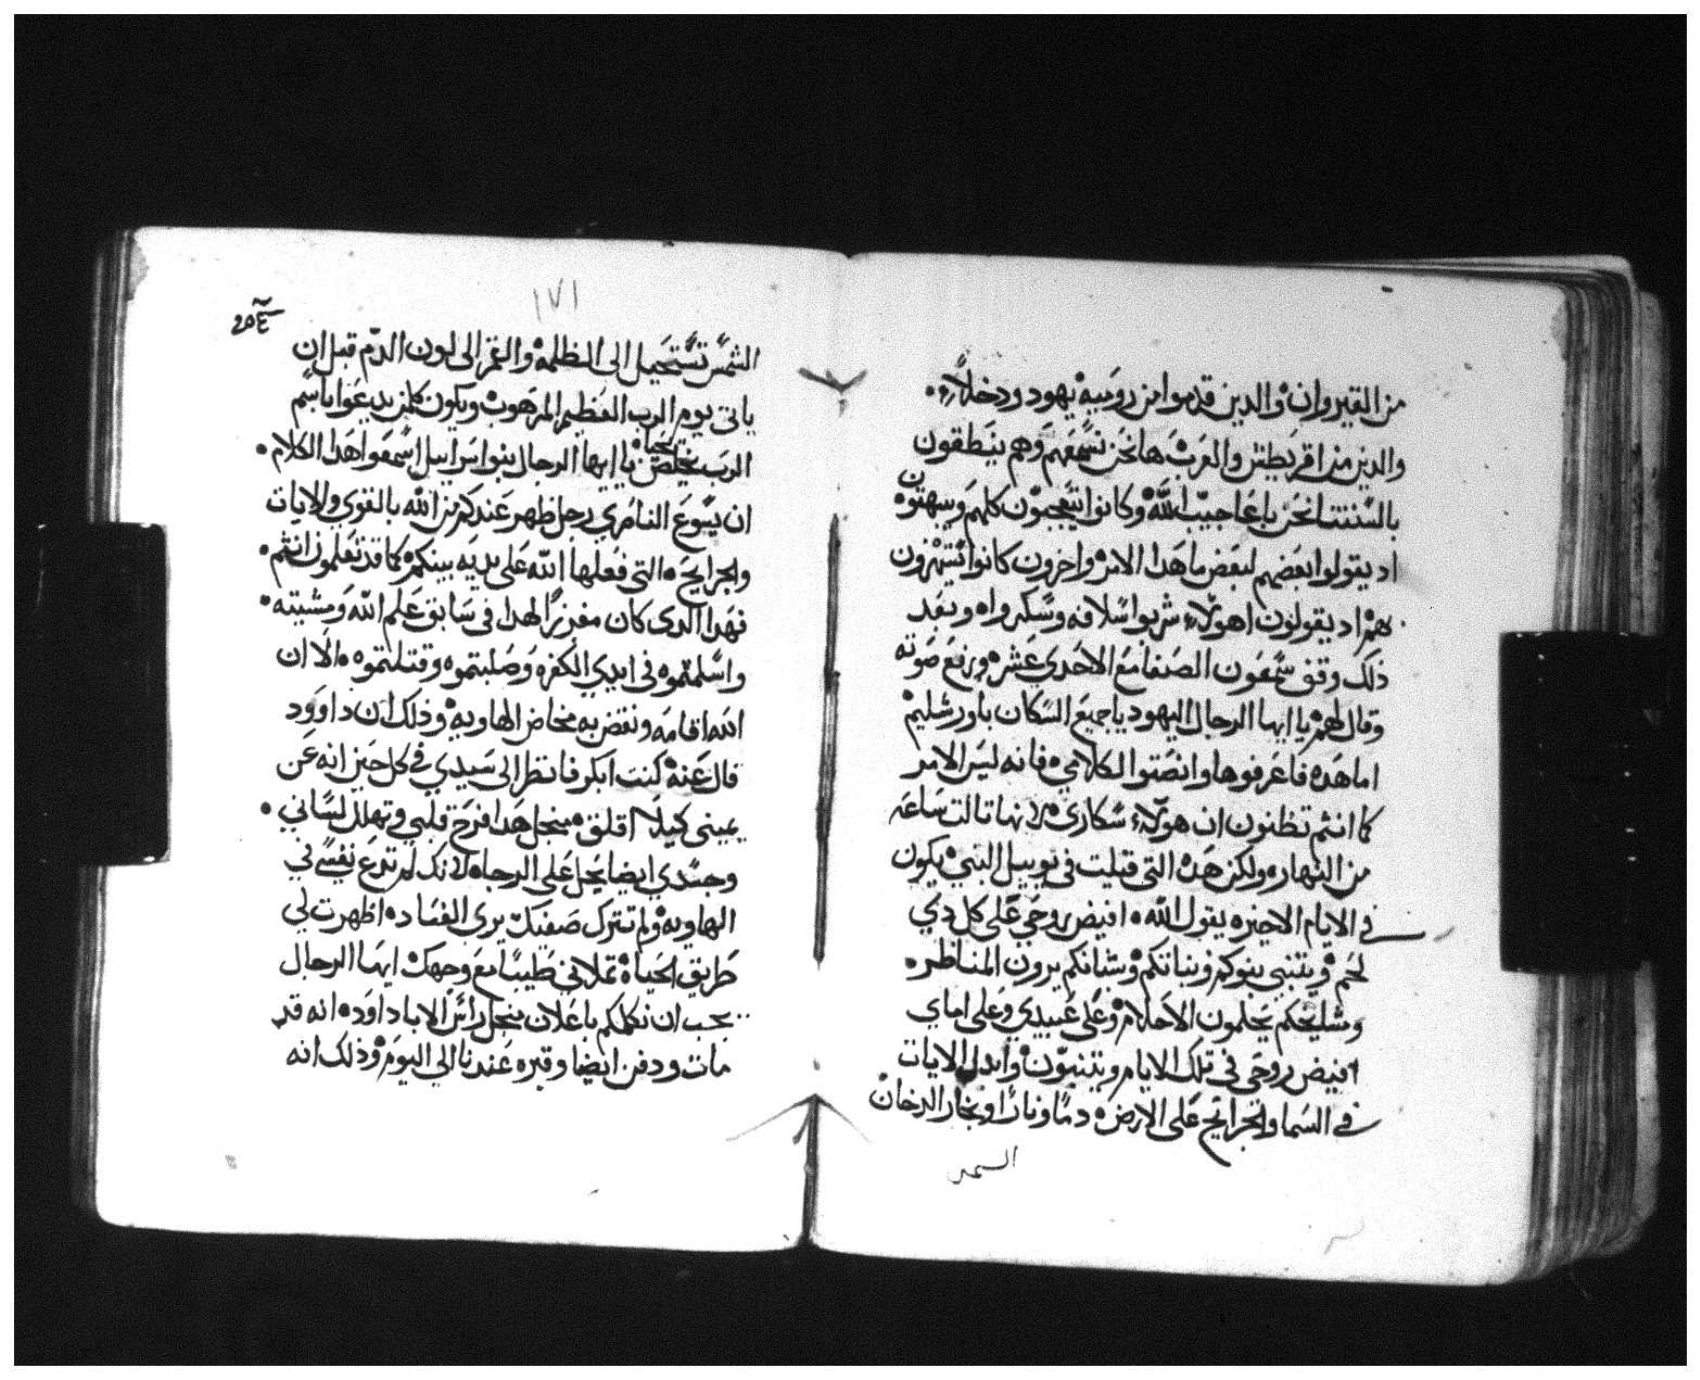 من القيروان والدين قدموا من روميه يهود ودخلاء
والدين من اقريطش والعرب ها نحن نسمعهم وهم ينطقون
بالسنتنا نحن باعاجيب الله وكانوا يتعجبون كلهم ويبهتون
اد يقولوا بعضهم لبعض ما هدا الامر واخرون كانوا يستهزون
بهم اد يقولون ا هولاء شربوا سلافه وسكروا وبعد
ذلك وقف سمعون الصفا مع الاحدي عشر ورفع صوته
وقال لهم يا ايها الرجال اليهود يا جميع السكان باورشليم
اما هده فاعرفوها وانصتوا لكلامي فانه ليس الامر
كما انتم تظنون ان هولاء سكارى لانها تالت ساعه
من النهار ولكن هده التي قيلت في يوييل النبي يكون
في الايام الاخيره يقول الله افيض روحي على كل دي
لحم ويتنبي بنوكم وبناتكم وشبانكم يرون المناظر
ومشايخكم يحلمون الاحلام وعلى عبيدي وعلى اماي
افيض روحي في تلك الايام ويتنبون وابدل الايات
في السما والجرايح على الارض دما ونارا وبخار الدخان
السمر
١٧١
الشمس تستحيل الى الظلمه والقمر الى لون الدم قبل ان
ياتى يوم الرب العظيم المرهوب ويكون كلمن يدعوا باسم
الرب يخلص يحيا يا ايها الرجال بنوا سراييل اسمعوا هدا الكلام
ان يسوع الناصري رجل ظهر عندكم من الله بالقوي والايات
والجرايح التى فعلها الله على يديه بينكم كما قد تعلمون انتم
فهدا الدى كان مفرزا لهدا فى سابق علم الله ومشيته
واسلمتموه فى ايدي الكفره وصلبتموه وقتلتموه الا ان
الله اقامه ونقض به مخاض الهاويه وذلك ان داوود
قال عنه كنت ابكر فانظر الى سيدي في كل حين انه عن
يمينى كيلا اقلق منجل هدا فرح قلبي وتهلل لساني
وجسدي ايضا يحل على الرجاه لانك لم تدع نفسي في
الهاويه ولم تترك صفيك يرى الفساد اظهرت لي
طريق الحياه تملاني طيبا مع وجهك ايها الرجال
يجب ان نكلمكم باعلان منجل راس الابا داود انه قد
مات ودفن ايضا وقبره عندنا الي اليوم وذلك انه